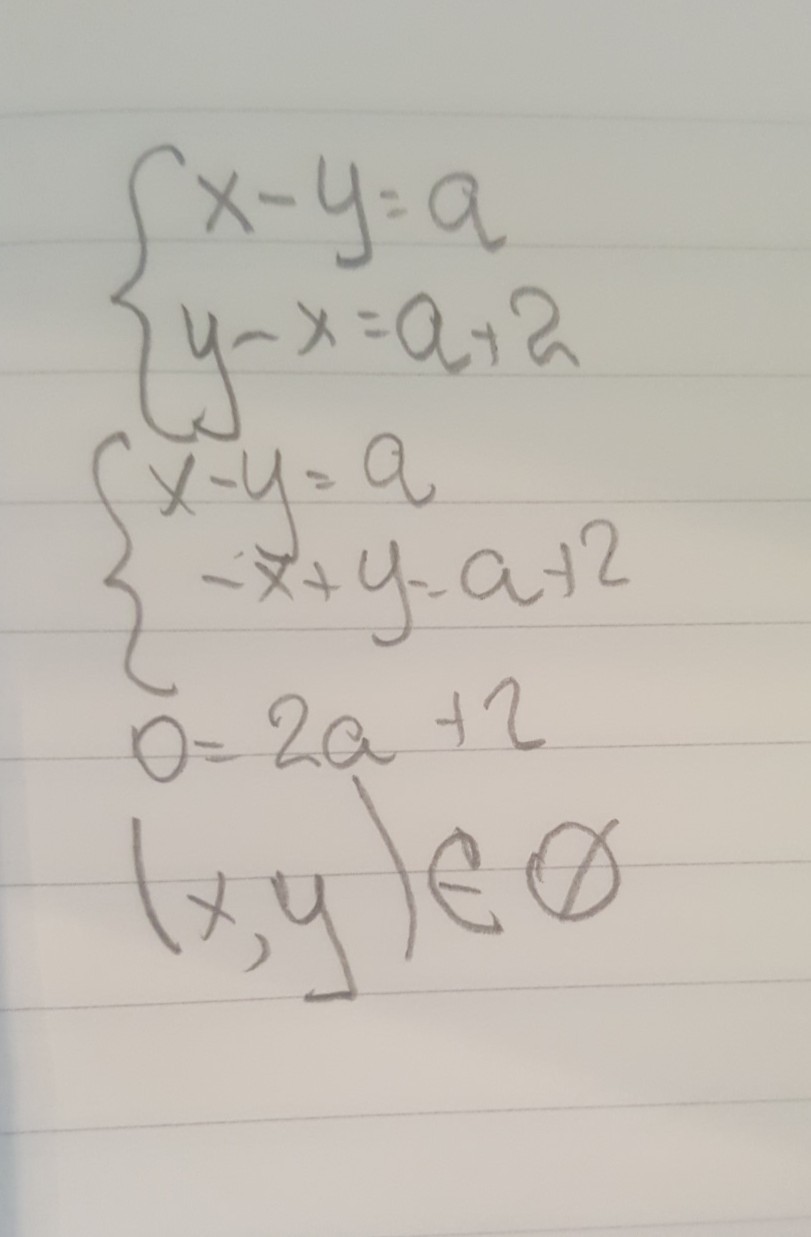 x - y = a
y - x = a + 2
x - y = a
- x + y = a + 2
0 = 2a + 2
(x, y) ∈ ∅